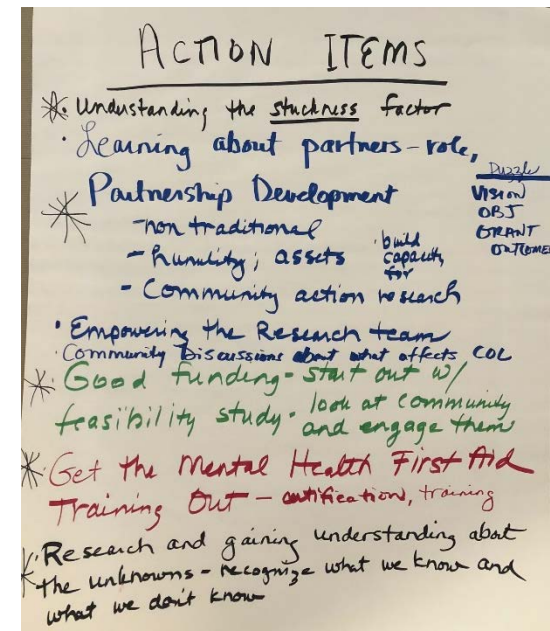 ACTION ITEMS
* · Understanding the stuckness factor
· Learning about partners - role,
Puzzle
VISION
OBJ
GRANT
OUTCOME
* Partnership Development
- non traditional
- humility; assets
· build
capacity
for
- Community action research
· Empowering the Research team
· Community Discussions about what affects COL
* · Good funding - start out w/
feasibility study · look at community
and engage them
* · Get the Mental Health First Aid
Training Out - certification, training
* · Research and gaining understanding about
the unknowns - recognize what we know and
what we don't know